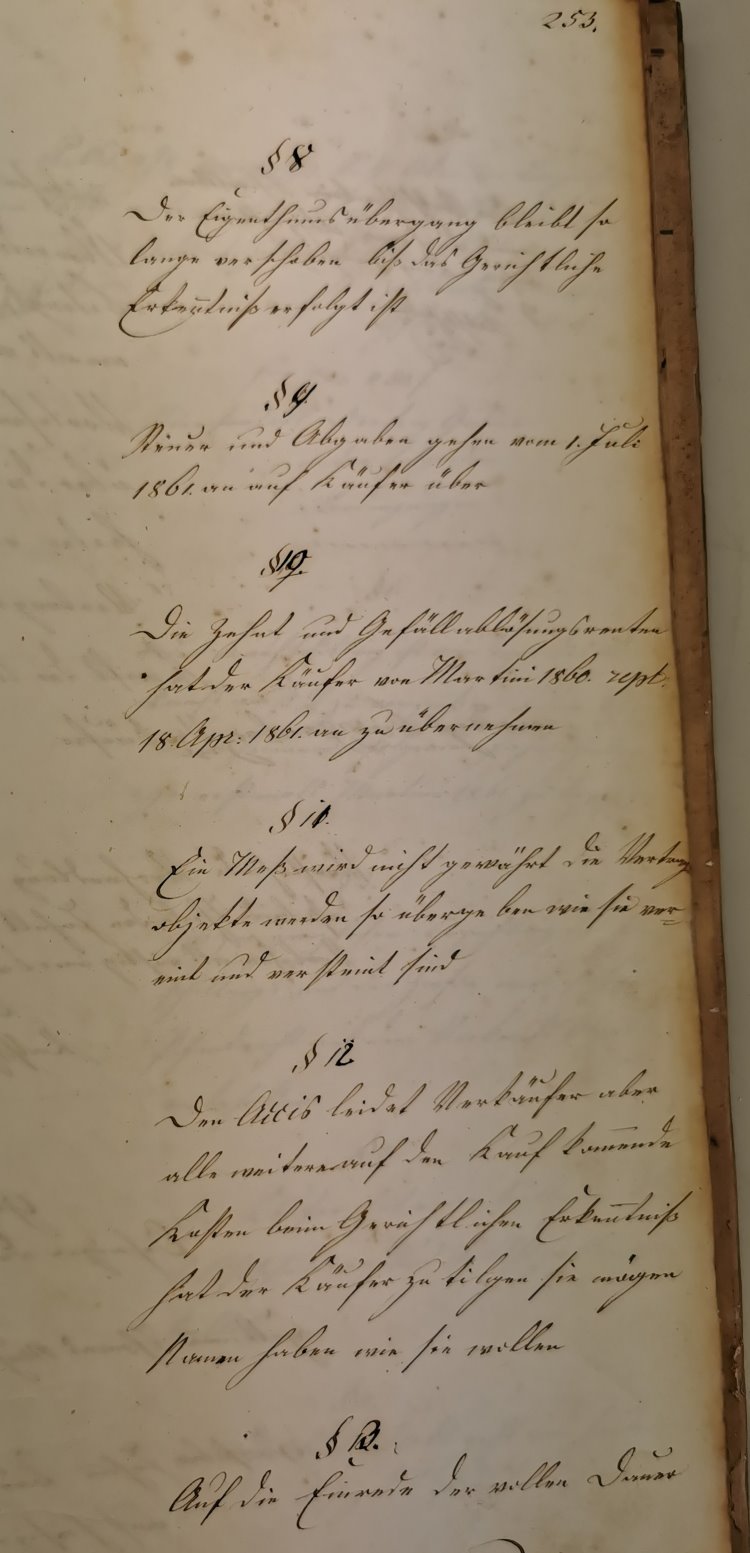 253.
§ 8
Der Eigenthumsübergang bleibt so
lange verschoben biß das Gerichtliche
Erkenntniß erfolgt ist
§ 9
Steuer und Abgaben gehen vom 1. Juli
1861. an auf Käufer über
§ 10.
Die Zehnt und Gefällablösungsrenten
hat der Käufer von Martini 1860. rept.
18. Apr: 1861. an zu übernehmen
§ 11.
Ein Meß wird nicht gewährt die Vertrags
objekte werden so übergeben wie sie ver-
eint und versteint sind
§ 12
Den Accis leidet Verkäufer aber
alle weitere auf den Kauf kommende
Kosten beim Gerichtlichen Erkenntniß
hat der Käufer zu tilgen sie mögen
Namen haben wie sie wollen
§ 13.
Auf die Einrede der vollen Dauer